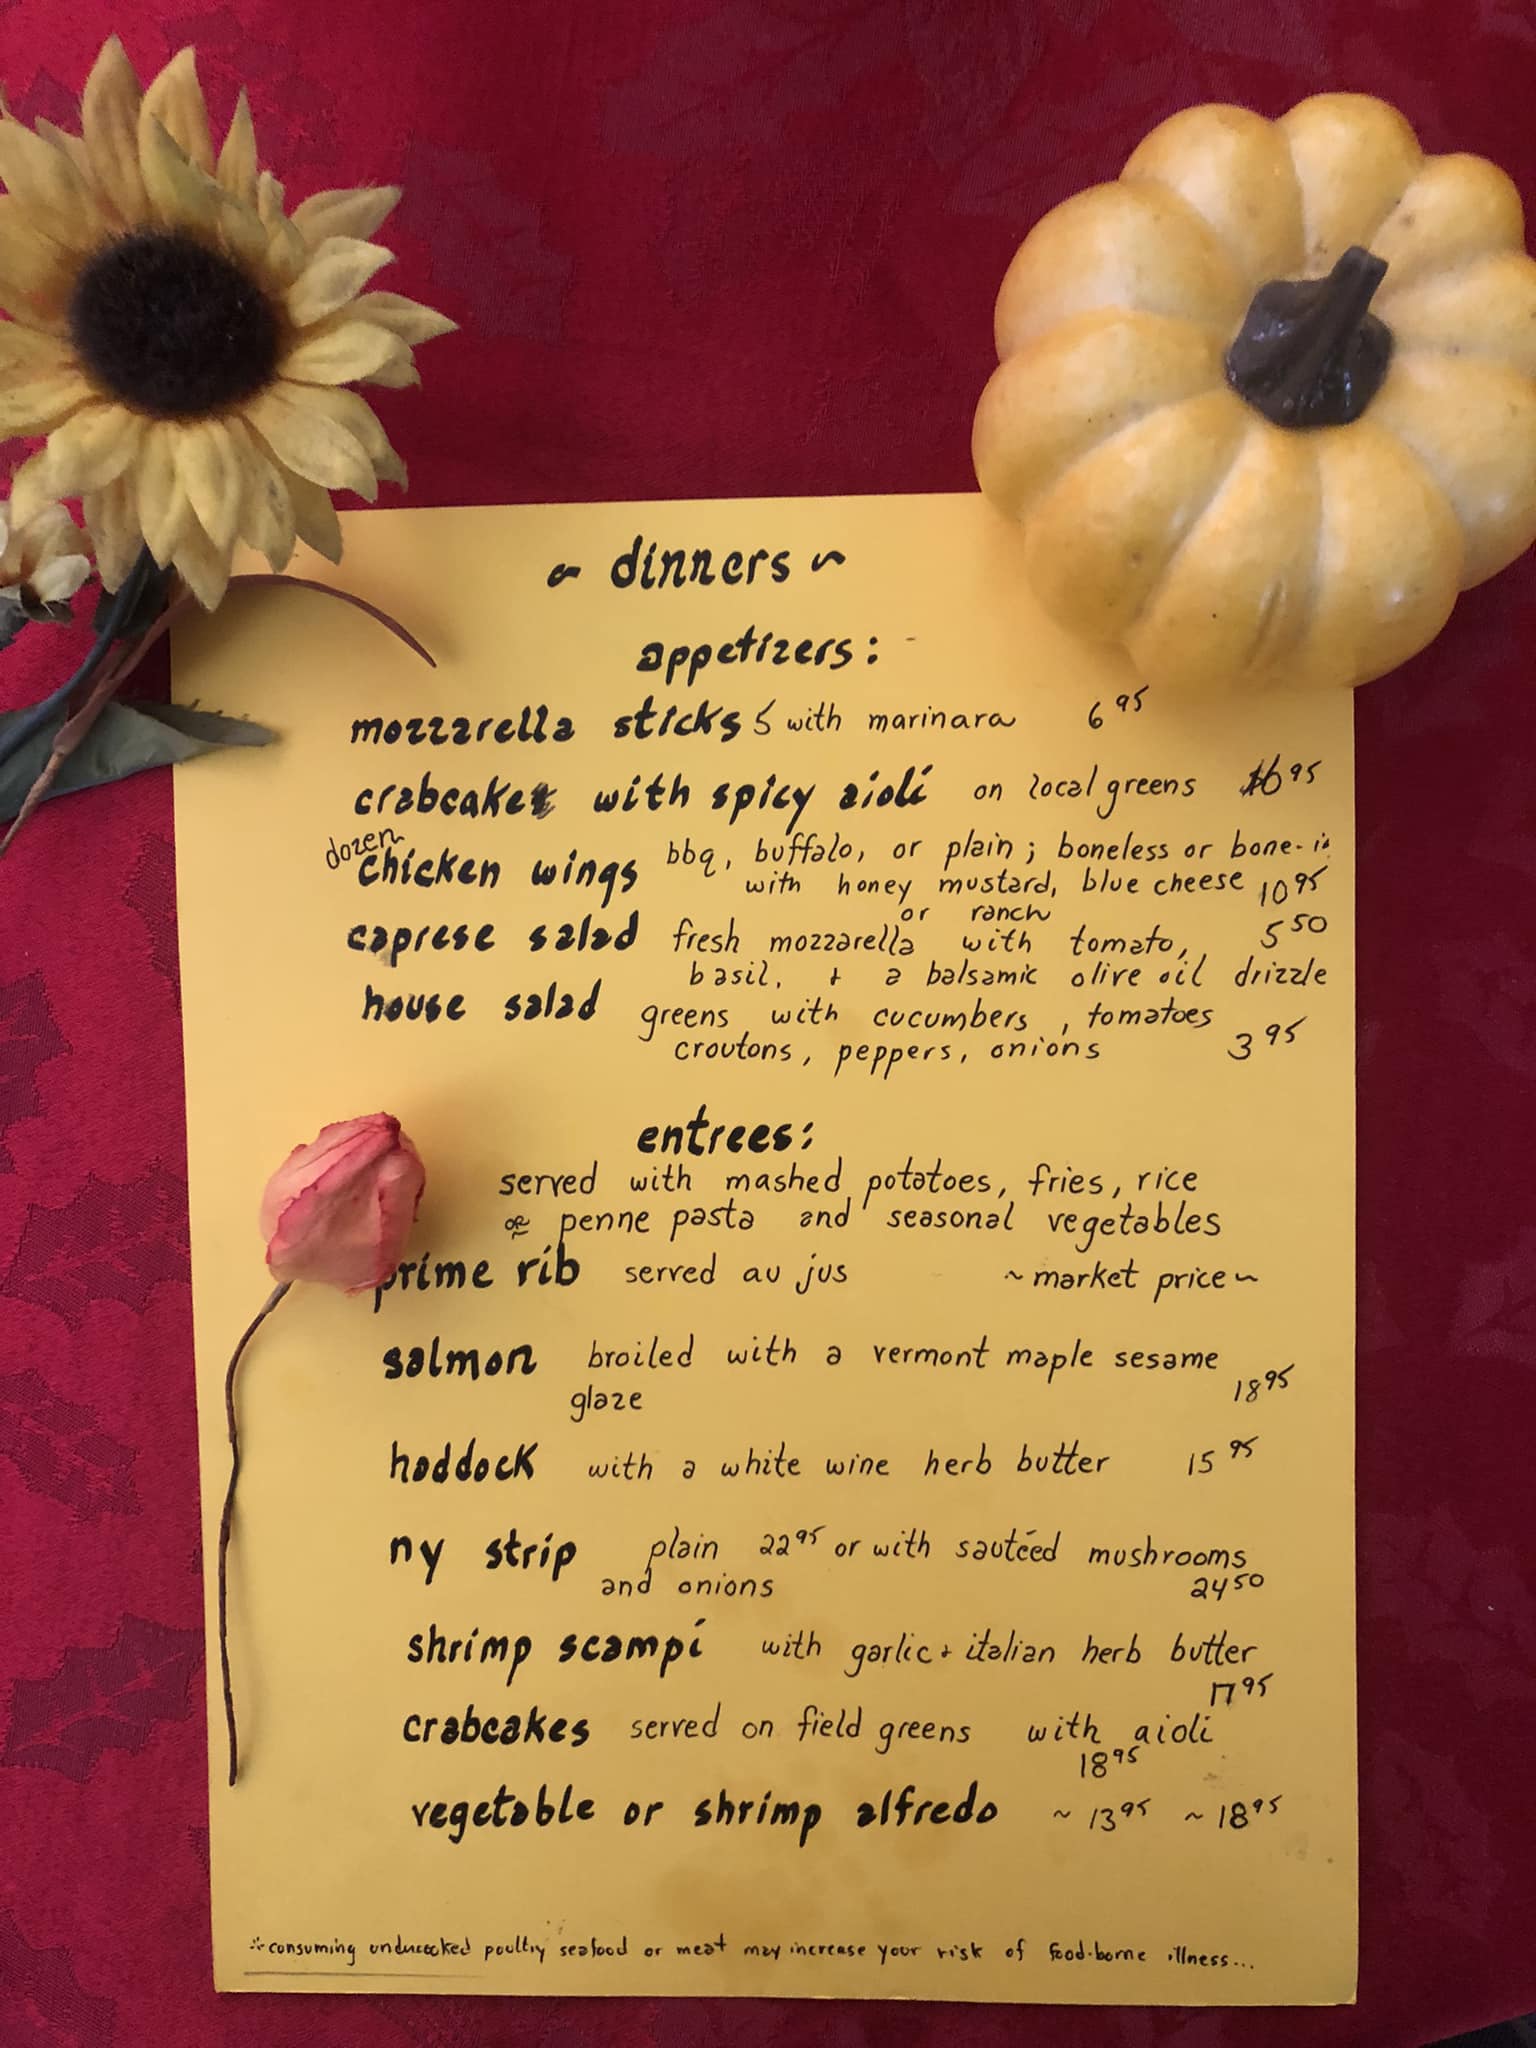 ~ dinners ~
appetizers:
mozzarella sticks 5 with marinara 6 95
crabcake with spicy aioli on local greens 95
dozen
chicken wings bbq, buffalo, or plain; boneless or bone-in
with honey mustard, blue cheese 10 95
or ranch
caprese salad fresh mozzarella with tomato, 5 50
basil, + a balsamic olive oil drizzle
house salad greens with cucumbers, tomatoes
croutons, peppers, onions 3 95
entrees:
served with mashed potatoes, fries, rice
or penne pasta and seasonal vegetables
prime rib served au jus ~market price~
salmon broiled with a vermont maple sesame
glaze 18 95
haddock with a white wine herb butter 15 95
ny strip plain 22 95 or with sautéed mushrooms
and onions 24 50
shrimp scampi with garlic + italian herb butter
17 95
crabcakes served on field greens with aioli
18 95
vegetable or shrimp alfredo ~ 13 95 ~ 18 95
*consuming undercooked poultry seafood or meat may increase your risk of food-borne illness...